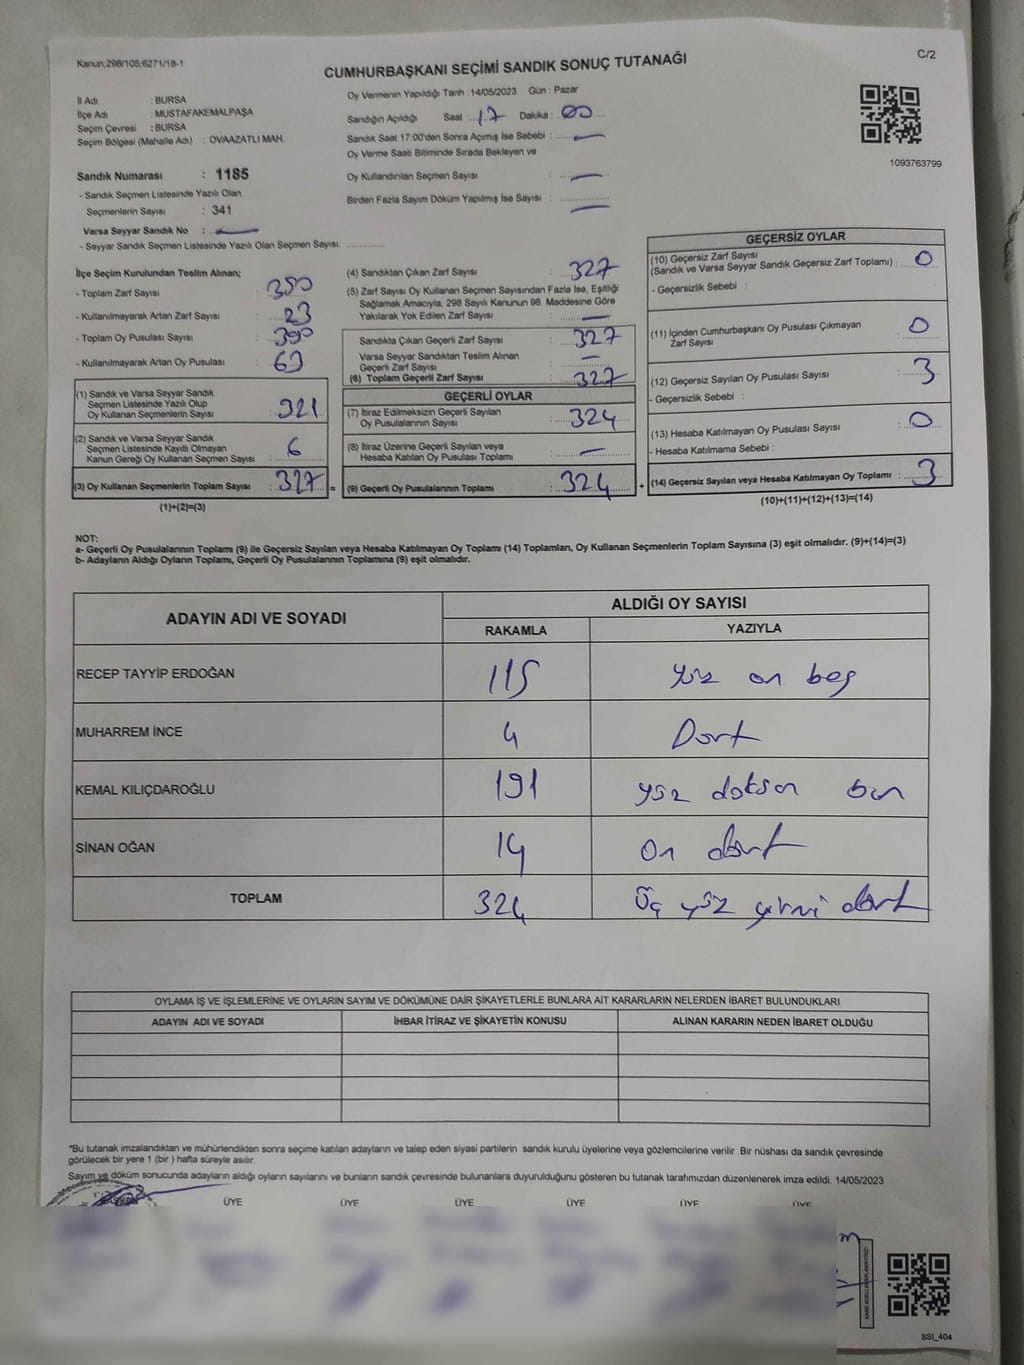 Kanun;298/105;6271/18-1
C/2
CUMHURBAŞKANI SEÇİMİ SANDIK SONUÇ TUTANAĞI
İl Adı : BURSA
İlçe Adı : MUSTAFAKEMALPAŞA
Seçim Çevresi : BURSA
Seçim Bölgesi (Mahalle Adı) : OVAAZATLI MAH.
Sandık Numarası : 1185
- Sandık Seçmen Listesinde Yazılı Olan
Seçmenlerin Sayısı : 341
Varsa Seyyar Sandık No :
- Seyyar Sandık Seçmen Listesinde Yazılı Olan Seçmen Sayısı
Oy Vermenin Yapıldığı Tarih : 14/05/2023 Gün : Pazar
Sandığın Açıldığı Saat 17 Dakika : 00
Sandık Saat 17:00'den Sonra Açımış İse Sebebi : —
Oy Verme Saati Bitiminde Sırada Bekleyen ve
Oy Kullandırılan Seçmen Sayısı : —
Birden Fazla Sayım Döküm Yapılmış İse Sayısı : —
1093763799
İlçe Seçim Kurulundan Teslim Alınan;
- Toplam Zarf Sayısı : 350
- Kullanılmayarak Artan Zarf Sayısı : 23
- Toplam Oy Pusulası Sayısı : 390
- Kullanılmayarak Artan Oy Pusulası : 63
(1) Sandık ve Varsa Seyyar Sandık
Seçmen Listesinde Yazılı Olup
Oy Kullanan Seçmenlerin Sayısı : 321
(2) Sandık ve Varsa Seyyar Sandık
Seçmen Listesinde Kayıtlı Olmayan
Kanun Gereği Oy Kullanan Seçmen Sayısı : 6
(3) Oy Kullanan Seçmenlerin Toplam Sayısı : 327 =
(1)+(2)=(3)
(4) Sandıktan Çıkan Zarf Sayısı : 327
(5) Zarf Sayısı Oy Kullanan Seçmen Sayısından Fazla İse, Eşitliği
Sağlamak Amacıyla, 298 Sayılı Kanunun 98. Maddesine Göre
Yakılarak Yok Edilen Zarf Sayısı : —
Sandıkta Çıkan Geçerli Zarf Sayısı : 327
Varsa Seyyar Sandıktan Teslim Alınan
Geçerli Zarf Sayısı : —
(6) Toplam Geçerli Zarf Sayısı : 327
GEÇERLİ OYLAR
(7) İtiraz Edilmeksizin Geçerli Sayılan
Oy Pusulalarının Sayısı : 324
(8) İtiraz Üzerine Geçerli Sayılan veya
Hesaba Katılan Oy Pusulası Toplamı : —
(9) Geçerli Oy Pusulalarının Toplamı : 324 +
GEÇERSİZ OYLAR
(10) Geçersiz Zarf Sayısı
(Sandık ve Varsa Seyyar Sandık Geçersiz Zarf Toplamı) : 0
- Geçersizlik Sebebi :
(11) İçinden Cumhurbaşkanı Oy Pusulası Çıkmayan
Zarf Sayısı : 0
(12) Geçersiz Sayılan Oy Pusulası Sayısı : 3
- Geçersizlik Sebebi :
(13) Hesaba Katılmayan Oy Pusulası Sayısı : 0
- Hesaba Katılmama Sebebi :
(14) Geçersiz Sayılan veya Hesaba Katılmayan Oy Toplamı : 3
(10)+(11)+(12)+(13)=(14)
NOT:
a- Geçerli Oy Pusulalarının Toplamı (9) ile Geçersiz Sayılan veya Hesaba Katılmayan Oy Toplamı (14) Toplamları, Oy Kullanan Seçmenlerin Toplam Sayısına (3) eşit olmalıdır. (9)+(14)=(3)
b- Adayların Aldığı Oyların Toplamı, Geçerli Oy Pusulalarının Toplamına (9) eşit olmalıdır.
ADAYIN ADI VE SOYADI
ALDIĞI OY SAYISI
RAKAMLA YAZIYLA
RECEP TAYYİP ERDOĞAN 115 yüz on beş
MUHARREM İNCE 4 Dört
KEMAL KILIÇDAROĞLU 191 yüz doksan bir
SİNAN OĞAN 14 on dört
TOPLAM 324 Üç yüz yirmi dört
OYLAMA İŞ VE İŞLEMLERİNE VE OYLARIN SAYIM VE DÖKÜMÜNE DAİR ŞİKAYETLERLE BUNLARA AİT KARARLARIN NELERDEN İBARET BULUNDUKLARI
ADAYIN ADI VE SOYADI İHBAR İTİRAZ VE ŞİKAYETİN KONUSU ALINAN KARARIN NEDEN İBARET OLDUĞU
*Bu tutanak imzalandıktan ve mühürlendikten sonra seçime katılan adayların ve talep eden siyasi partilerin sandık kurulu üyelerine veya gözlemcilerine verilir. Bir nüshası da sandık çevresinde
görülecek bir yere 1 (bir ) hafta süreyle asılır.
Sayım ve döküm sonucunda adayların aldığı oyların sayılarını ve bunların sandık çevresinde bulunanlara duyurulduğunu gösteren bu tutanak tarafımızdan düzenlenerek imza edildi. 14/05/2023
BAŞKAN ÜYE ÜYE ÜYE ÜYE ÜYE ÜYE
SSI_404